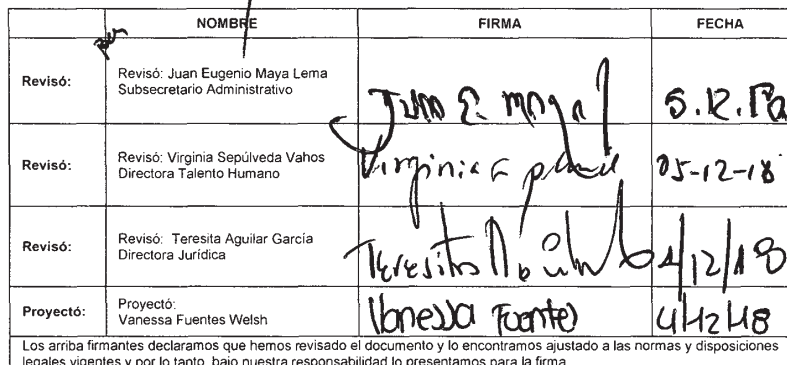 NOMBRE FIRMA FECHA
Revisó: Revisó: Juan Eugenio Maya Lema
Subsecretario Administrativo
Juan E. Maya
Revisó: Revisó: Virginia Sepúlveda Vahos
Directora Talento Humano
Virginia 05-12-18
Revisó: Revisó: Teresita Aguilar García
Directora Jurídica
Teresita 4/12/18
Proyectó: Proyectó:
Vanessa Fuentes Welsh
Vanessa Fuentes 4/12/18
Los arriba firmantes declaramos que hemos revisado el documento y lo encontramos ajustado a las normas y disposiciones
legales vigentes y por lo tanto, bajo nuestra responsabilidad lo presentamos para la firma.